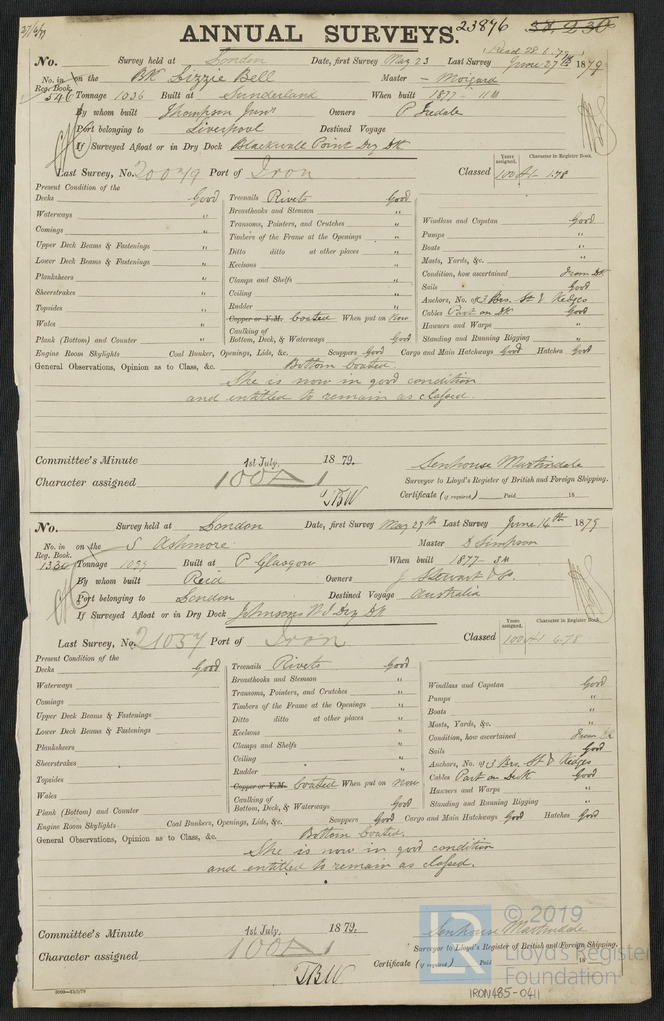 ANNUAL SURVEYS. 23876
(Read 28.6.79)
No. Survey held at London Date, first Survey May 23 Last Survey June 27th 1879
No. in Reg. Book. on the BK Lizzie Bell Master - Moigard
546 Tonnage 1036 Built at Sunderland When built 1877 - 11M
By whom built Thompson Junr Owners P Iredale
Port belonging to Liverpool Destined Voyage
If Surveyed Afloat or in Dry Dock Blackwall Point Dry Dk
Years assigned. Character in Register Book.
Last Survey, No. 20049 Port of Iron Classed 100A1- 1.78
Present Condition of the
Decks Good
Waterways "
Comings "
Upper Deck Beams & Fastenings "
Lower Deck Beams & Fastenings "
Planksheers "
Sheerstrakes "
Topsides "
Wales "
Plank (Bottom) and Counter "
Treenails Rivets Good
Breasthooks and Stemson "
Transoms, Pointers, and Crutches "
Timbers of the Frame at the Openings "
Ditto ditto at other places "
Keelsons "
Clamps and Shelfs "
Ceiling "
Rudder "
Copper or Y.M. Coated When put on Now
Caulking of Bottom, Deck, & Waterways Good
Windlass and Capstan Good
Pumps "
Boats "
Masts, Yards, &c. "
Condition, how ascertained From Dk
Sails Good
Anchors, No. of 3 Brs. St & Kedges
Cables Part on Dk Good
Hawsers and Warps "
Standing and Running Rigging "
Engine Room Skylights Coal Bunker, Openings, Lids, &c. Scuppers Good Cargo and Main Hatchways Good Hatches Good
General Observations, Opinion as to Class, &c. Bottom Coated.
She is now in good condition
and entitled to remain as classed.
Committee's Minute 1st July, 1879.
Character assigned 100A1
Senhouse Martindale
Surveyor to Lloyd's Register of British and Foreign Shipping.
TBW Certificate (if required) Paid 18
No. Survey held at London Date, first Survey May 29th Last Survey June 14th 1879
No. in Reg. Book. on the S Ashmore Master D Simpson
1330 Tonnage 1099 Built at P Glasgow When built 1877- 5M
By whom built Reid Owners J Stewart & Co.
Port belonging to London Destined Voyage Australia
If Surveyed Afloat or in Dry Dock Johnsons No 1 Dry Dk
Years assigned. Character in Register Book.
Last Survey, No. 21057 Port of Iron Classed 100A1 6.78
Present Condition of the
Decks Good
Waterways "
Comings "
Upper Deck Beams & Fastenings "
Lower Deck Beams & Fastenings "
Planksheers "
Sheerstrakes "
Topsides "
Wales "
Plank (Bottom) and Counter "
Treenails Rivets Good
Breasthooks and Stemson "
Transoms, Pointers, and Crutches "
Timbers of the Frame at the Openings "
Ditto ditto at other places "
Keelsons "
Clamps and Shelfs "
Ceiling "
Rudder "
Copper or Y.M. Coated When put on Now
Caulking of Bottom, Deck, & Waterways Good
Windlass and Capstan Good
Pumps "
Boats "
Masts, Yards, &c. "
Condition, how ascertained From Dk
Sails Good
Anchors, No. of 3 Brs. St & Kedges
Cables Part on Deck Good
Hawsers and Warps "
Standing and Running Rigging "
Engine Room Skylights Coal Bunkers, Openings, Lids, &c. Scuppers Good Cargo and Main Hatchways Good Hatches Good
General Observations, Opinion as to Class, &c. Bottom Coated.
She is now in good condition
and entitled to remain as classed.
Committee's Minute 1st July, 1879.
Character assigned 100A1
Senhouse Martindale
Surveyor to Lloyd's Register of British and Foreign Shipping.
TBW Certificate (if required) Paid 18
© 2019
LR Lloyd's Register
Foundation
IRON485-0411